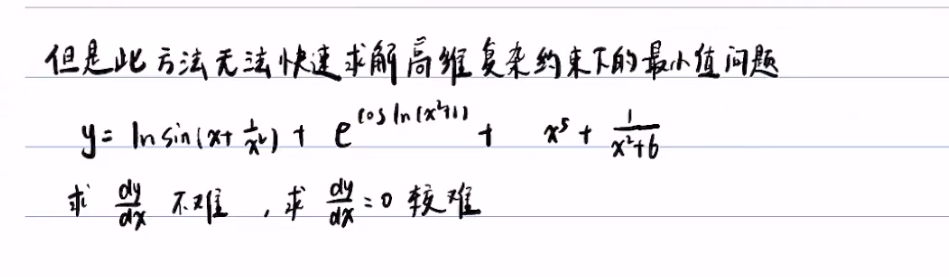 但是此方法无法快速求解高维复杂约束下的最小值问题
y= ln sin(x+1/x²) + e^(cos ln(x²+1)) + x⁵ + 1/(x²+6)
求 dy/dx 不难，求 dy/dx =0 较难